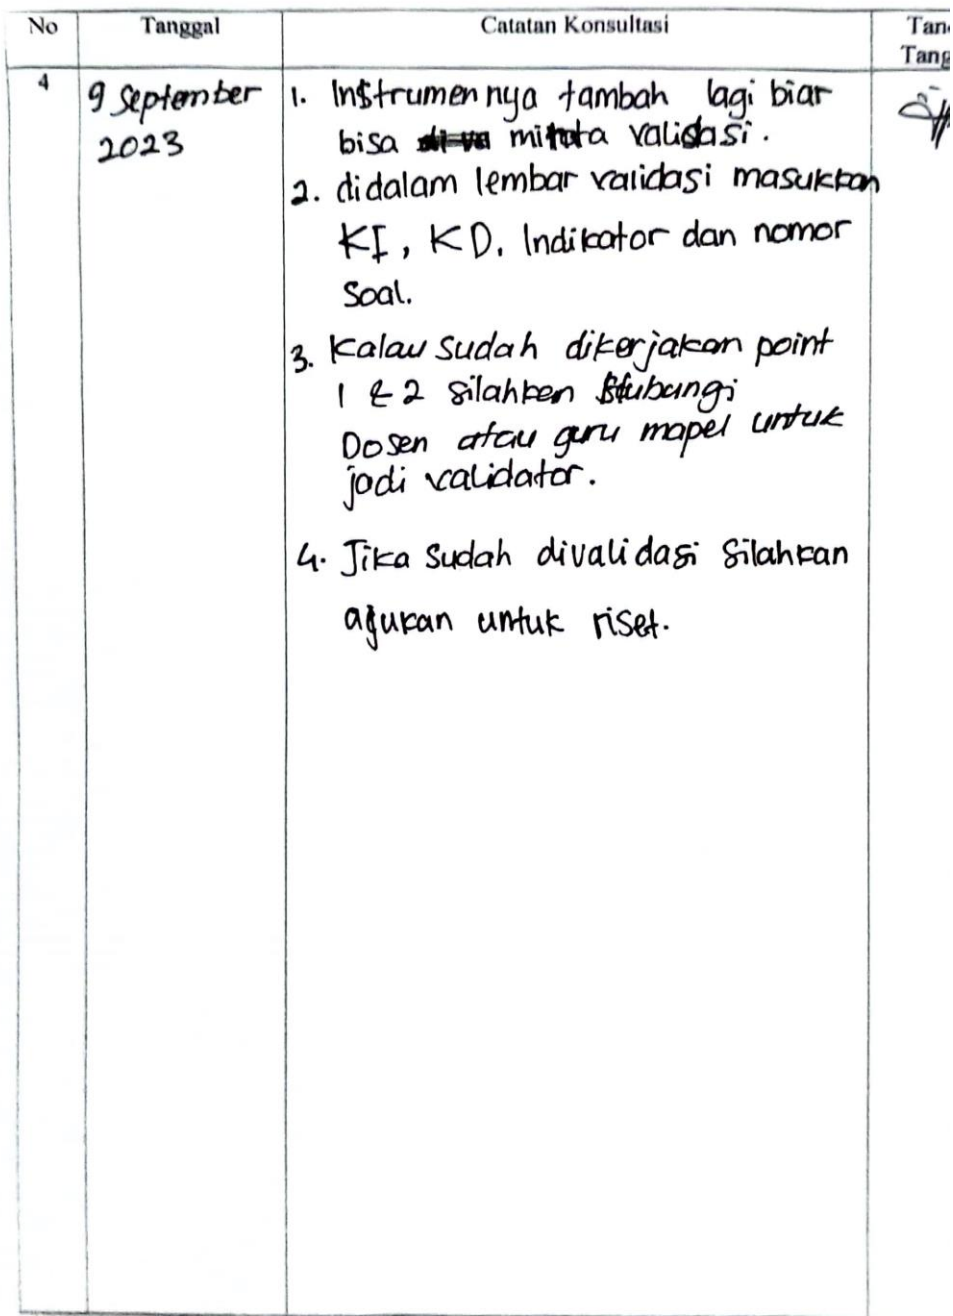 No Tanggal Catatan Konsultasi Tan
Tang
4 9 September 2023
1. Instrumennya tambah lagi biar
bisa minta validasi.
2. didalam lembar validasi masukkan
KI, KD, Indikator dan nomor
Soal.
3. Kalau Sudah dikerjakan point
1 & 2 silahkan Hubungi
Dosen atau guru mapel untuk
jadi validator.
4. Jika Sudah divalidasi Silahkan
ajukan untuk riset.